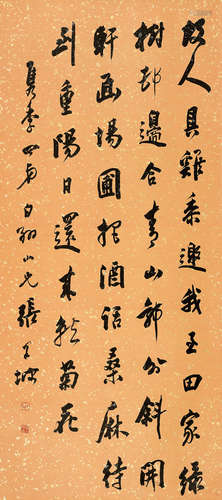 故人具雞黍邀我至田家綠
樹邨邊合青山郭外斜開
軒面場圃把酒話桑麻待
到重陽日還來就菊花
夏季